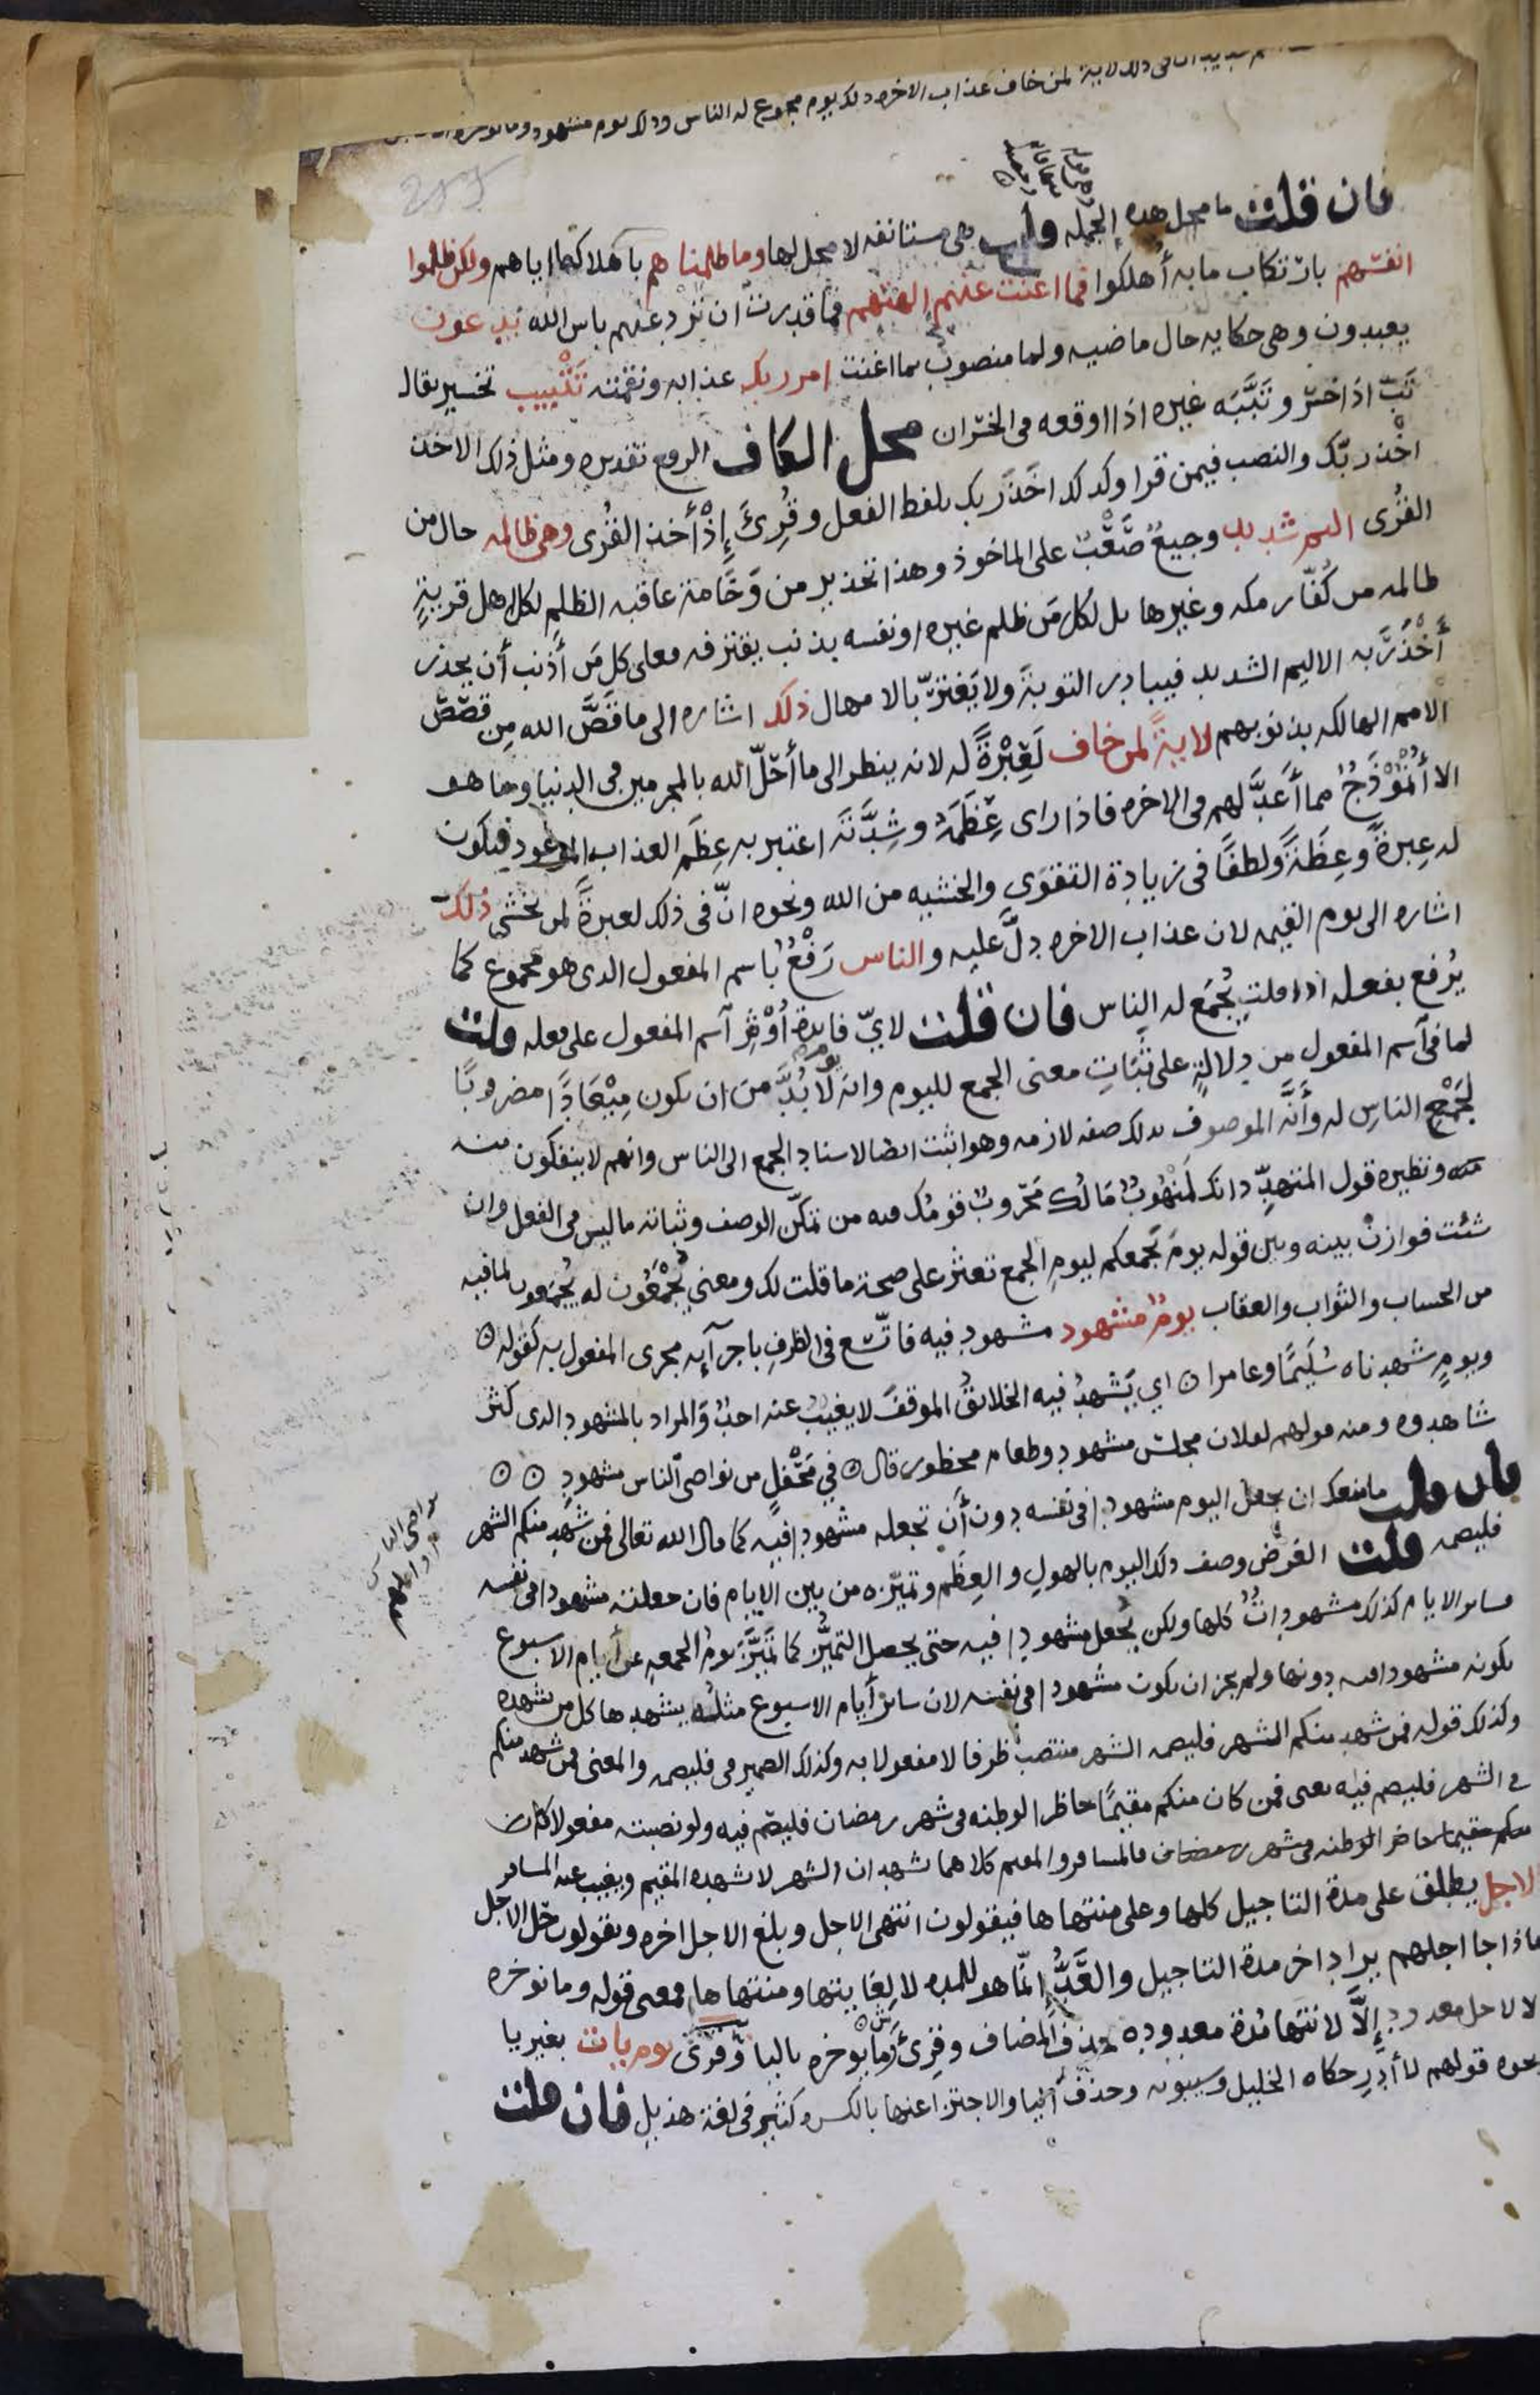 لمن خاف عذاب الاخره ذلك يوم مجموع له الناس وذلك يوم مشهود وما نوخره
فان قلت ما محل هذه الجمله قلت هى مستانفه لا محل لها وما ظلمناهم باهلاكنا اياهم ولكن ظلموا
انفسهم بارتكاب ما به أهلكوا فما اغنت عنهم الهتهم فما قدرت ان ترد عنهم باس الله يدعون
يعبدون وهى حكايه حال ماضيه ولما منصوب بما اغنت امر ربك عذابه ونقمته تَتْبِيب تخسير يقال
تَبّ اذا خسر وتَبَّبَه غيره اذا اوقعه فى الخسران محل الكاف الرفع تقديره ومثل ذلك الاخذ
اخذ ربّك والنصب فيمن قرا وكذلك اخَذَ ربك بلفظ الفعل وقُرِئَ إِذْ أخذ القُرى وهى ظالمه حال من
القُرى اليم شديد وجيعٌ صَعْبٌ على الماخوذ وهذا تحذير من وَخَامة عاقبه الظلم لكل اهل قريةٍ
ظالمه من كُفّار مكه وغيرها بل لكل مَن ظلم غيره او نفسه بذنب يقترفه فعلى كل مَن أذنب أن يحذر
أَخْذَ رَبّه الاليم الشديد فيبادر التوبةَ ولا يَغترّ بالامهال ذلك اشاره الى ما قَصَّ الله مِن قصَص
الامم الهالكه بذنوبهم لايةً لمن خاف لَعِبْرَةً له لانه ينظر الى ما أحَلّ الله بالمجرمين فى الدنيا وما هو
الا أُنْمُوْذَجٌ مما أَعَدَّ لهم فى الاخره فاذا راى عِظَمَهُ وشِدَّتَه اعتبر به عِظَم العذاب الموعود فيكون
له عِبرةً وعِظَةً ولطفًا فى زيادة التقوى والخشيه من الله ونحوه انّ فى ذلك لعبرةً لمن يخشى ذلك
اشاره الى يوم القيمه لان عذاب الاخره دلَّ عليه والناس رَفْعٌ باسم المفعول الذى هو مجموع كما
يُرفع بفعله اذا قلت يُجمَع له الناس فان قلت لايّ فايدة أُوْثِرَ اسم المفعول على فعله قلت
لما فى اسم المفعول من دلالةٍ على ثَبَاتِ معنى الجمع لليوم وانه لَا بُدَّ من ان يكون مِيْعَادًا مضروبًا
لجَمْعِ الناسِ له وأنَّه الموصوف بذلك صفه لازمه وهو اثبت ايضا لاسناد الجمع الى الناس وانهم لا ينفكون منه
ونظيره قول المتهدِّد انك لَمَنْهُوبٌ مَالُك مَحْروبٌ قومُك فيه من تمكّن الوصف وثباته ما ليس فى الفعل وان
شئت فوازنْ بينه وبين قوله يومَ يَجمعكم ليومِ الجمع تعثر على صحة ما قلت لك ومعنى يُجْمَعُون له يُجمَعون لما فيه
من الحساب والثواب والعقاب يومٌ مشهود مشهود فيه فاتّسع فى الظرفِ باجرآيه مجرى المفعول به كقوله
ويومٍ شهدناه سُلَيمًا وعامرا اي يَشْهدُ فيه الخلائقُ الموقفَ لا يغيبُ عنه احدٌ والمراد بالمشهود الذى كثر
شاهدوه ومنه قولهم لفلان مجلس مشهود وطعام محظور قال في مَحْفِلٍ من نواصى الناس مشهودِ
فان قلت ما منعك ان تجعل اليوم مشهودا فى نفسه دون أن تجعله مشهودا فيه كما قال الله تعالى فمن شهد منكم الشهر
فليصمه قلت الغرض وصف ذلك اليوم بالهولِ والعِظَم وتميّزه من بين الايام فان جعلته مشهودا فى نفسه
فسائر الايام كذلك مشهوداتٌ كلها ولكن يُجعل مشهودا فيه حتى يحصل التميُّز كما تَميَّز يومُ الجمعه عن أيام الاسبوع
بكونه مشهودا فيه دونها ولم يجز ان يكون مشهودا فى نفسه لان سائر أيام الاسبوع مثلُه يشهدها كل من يشهده
وكذلك قوله فمن شهد منكم الشهر فليصمه الشهر منتصب ظرفا لا مفعولا به وكذلك الضمير فى فليصمه والمعنى فمن شهد منكم
فى الشهر فليصم فيه يعنى فمن كان منكم مقيمًا حاظرا لوطنه فى شهر رمضان فليصم فيه ولو نصبته مفعولا كان
منكم مقيما حاضر الوطنه فى شهر رمضان فالمسافر والمقيم كلاهما يشهدان الشهر لا يشهده المقيم ويغيب عنه المسافر
الاجل يطلق على مدة التاجيل كلها وعلى منتهاها فيقولون انتهى الاجل وبلغ الاجل اخره ويقولون حلّ الاجل
فاذا جا اجلهم يراد اخر مدة التاجيل والعَدُّ انّما هو للمده لا لِغايتها ومنتهاها فمعنى قوله وما نوخره
الا لاجل معدود إِلَّا لانتها مُدة معدوده بحذف المضاف وقرئ وما يوخره باليا وقرئ يوم يات بغير يا
ونحوه قولهم لا أدرِ حكاه الخليل وسيبويه وحذف اليا والاجتزا عنها بالكسره كثير فى لغة هذيل فان قلت
نواصى الناس